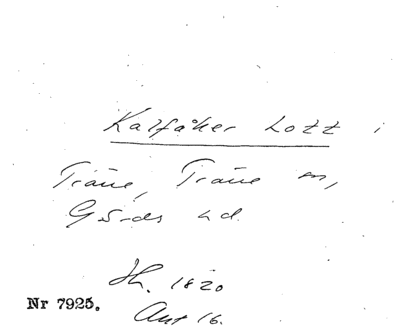 Kalfåker Lott i
Träne, Träne sn,
Gärds hd.
Hh. 1820
Nr 7925.
Akt 16.